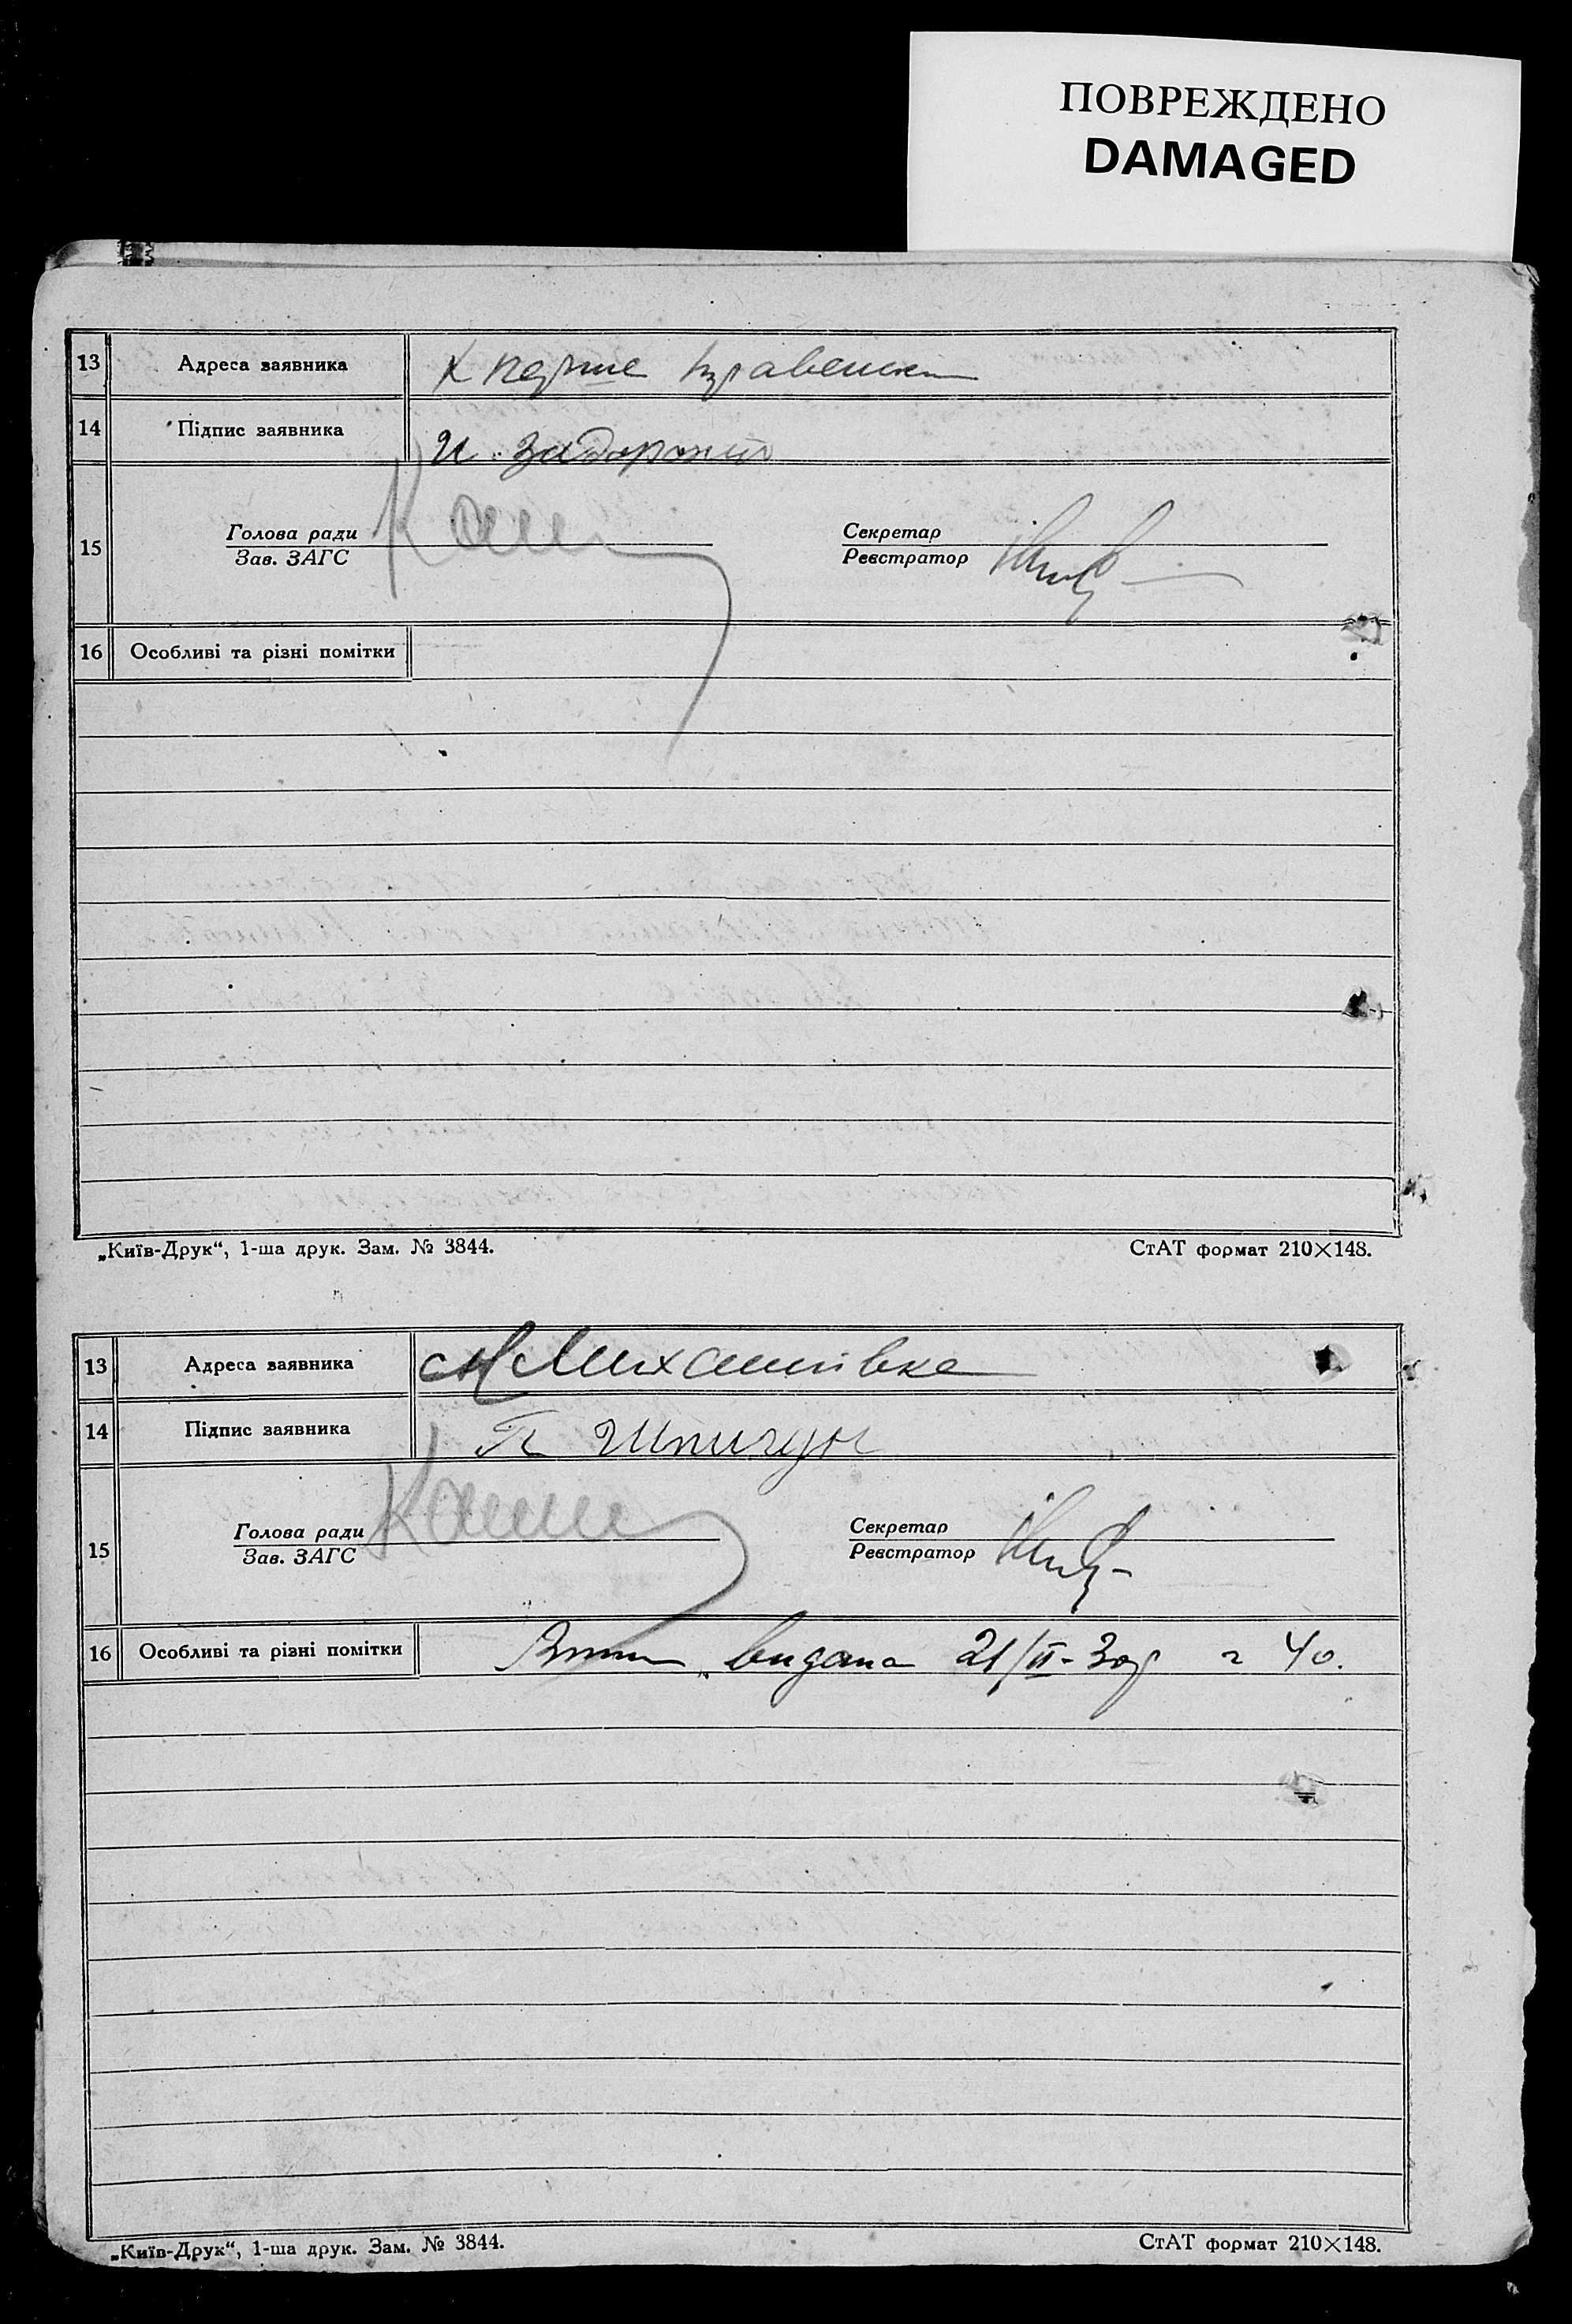 ПОВРЕЖДЕНО
DAMAGED
13 Адреса заявника х перше травення
14 Підпис заявника И. Задорожній
15 Голова ради Секретар
Зав. ЗАГС Реєстратор
16 Особливі та різні помітки
„Київ-Друк“, 1-ша друк. Зам. № 3844. СтАТ формат 210×148.
13 Адреса заявника с Михайлівка
14 Підпис заявника П Шпичук
15 Голова ради Секретар
Зав. ЗАГС Реєстратор
16 Особливі та різні помітки видана 21/II-30р
„Київ-Друк“, 1-ша друк. Зам. № 3844. СтАТ формат 210×148.